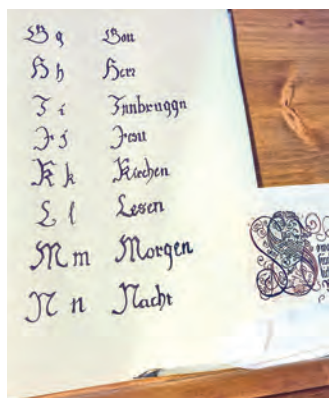 G g Gott
H h Herr
I i Innbruggn
J j Jesu
K k Kirchen
L l Lesen
M m Morgen
N n Nacht